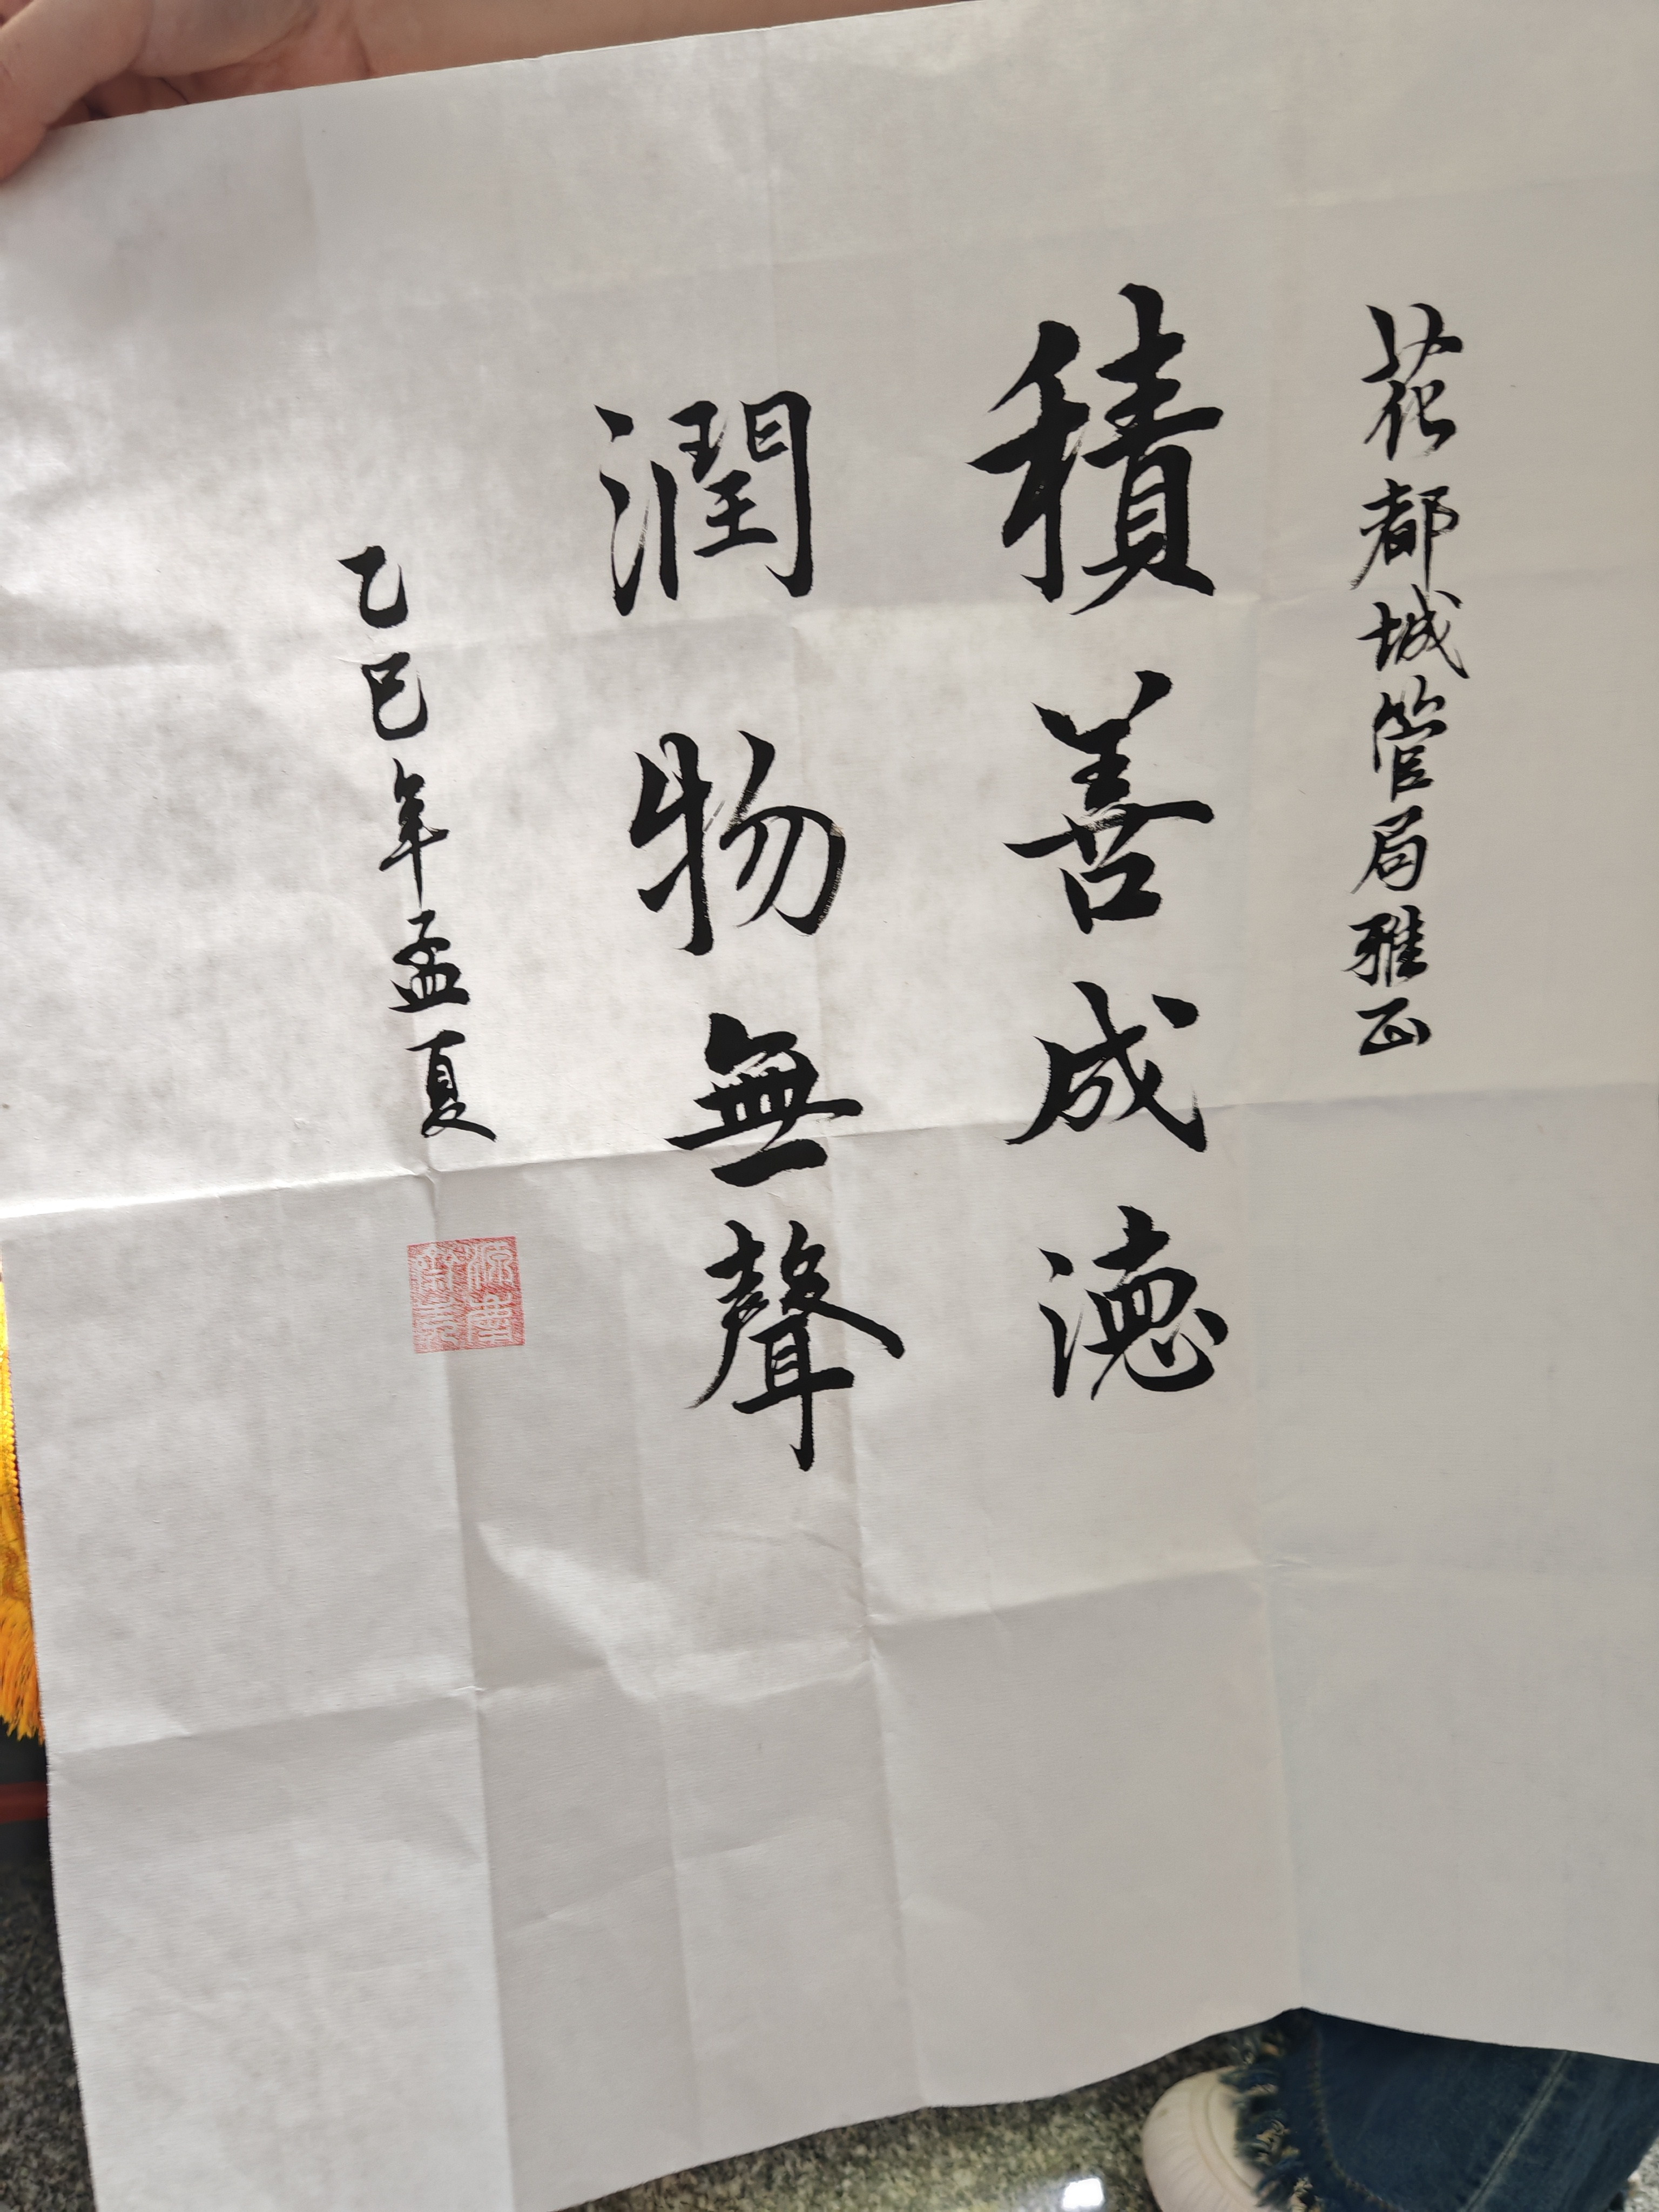 花都城管局雅正
積善成德
潤物無聲
乙巳年孟夏